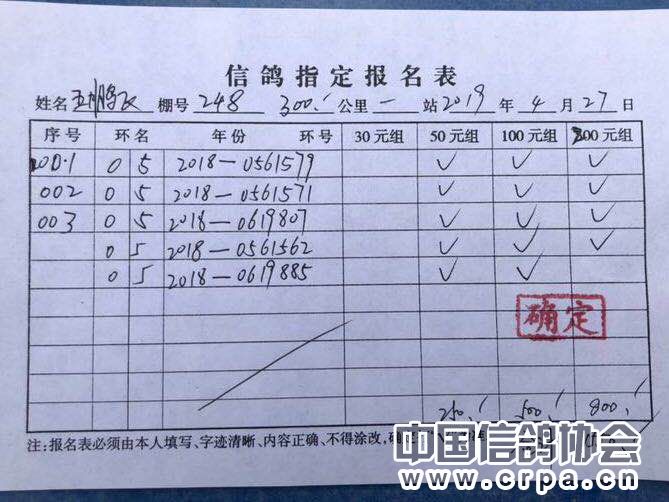 信鸽指定报名表
姓名 棚号 248 300. 公里 一 站 2019 年 4 月 27 日
序号 环名 年份 环号 30元组 50元组 100元组 200元组
001 05 2018-0561579 ✓ ✓ ✓
002 05 2018-0561571 ✓ ✓ ✓
003 05 2018-0619807 ✓ ✓ ✓
05 2018-0561562 ✓ ✓ ✓
05 2018-0619885 ✓ ✓
确定
250. 500. 800.
注:报名表必须由本人填写、字迹清晰、内容正确、不得涂改,确
中国信鸽协会
www.crpa.cn